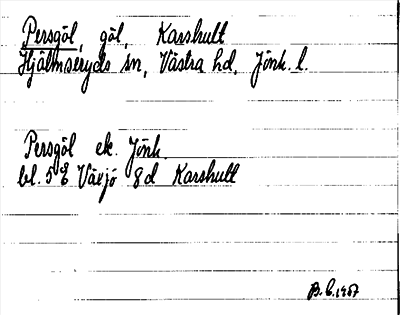 Persgöl, göl, Karshult
Hjälmseryds sn, Västra hd, Jönk. l.
Persgöl ek. Jönk.
bl. 5 E Växjö 8d Karshult
B. C. 1967